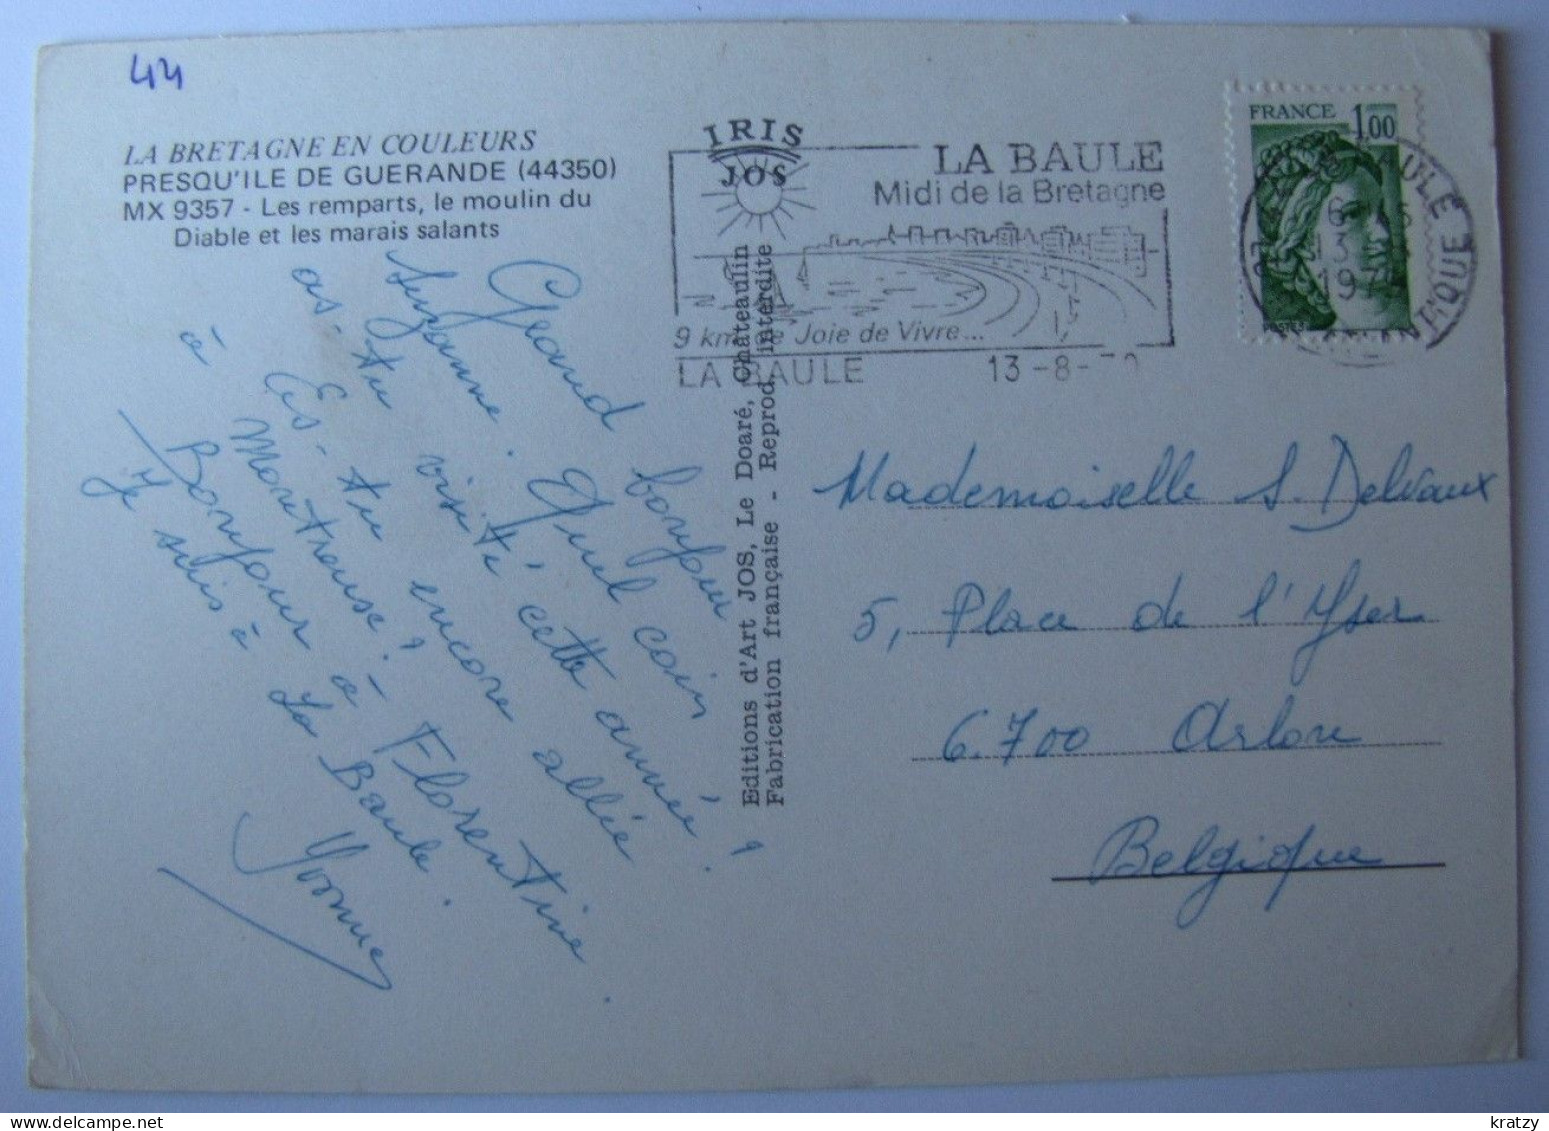 44
LA BRETAGNE EN COULEURS
PRESQU'ILE DE GUERANDE (44350)
MX 9357 - Les remparts, le moulin du
Diable et les marais salants
Grand bonjour
Suzanne. Quel coin
as-tu visité cette année?
Es-tu encore allée
à Montreuse?
Bonjour à Florentine.
Je suis à La Baule.
Yvonne
IRIS
JOS
Editions d'Art JOS, Le Doaré, Châteaulin
Fabrication française - Reprod. interdite
LA BAULE
Midi de la Bretagne
9 km de Joie de Vivre...
LA BAULE 13-8-
FRANCE 1,00
Mademoiselle S. Delvaux
5, Place de l'Yser
6.700 Arlon
Belgique
kratzy